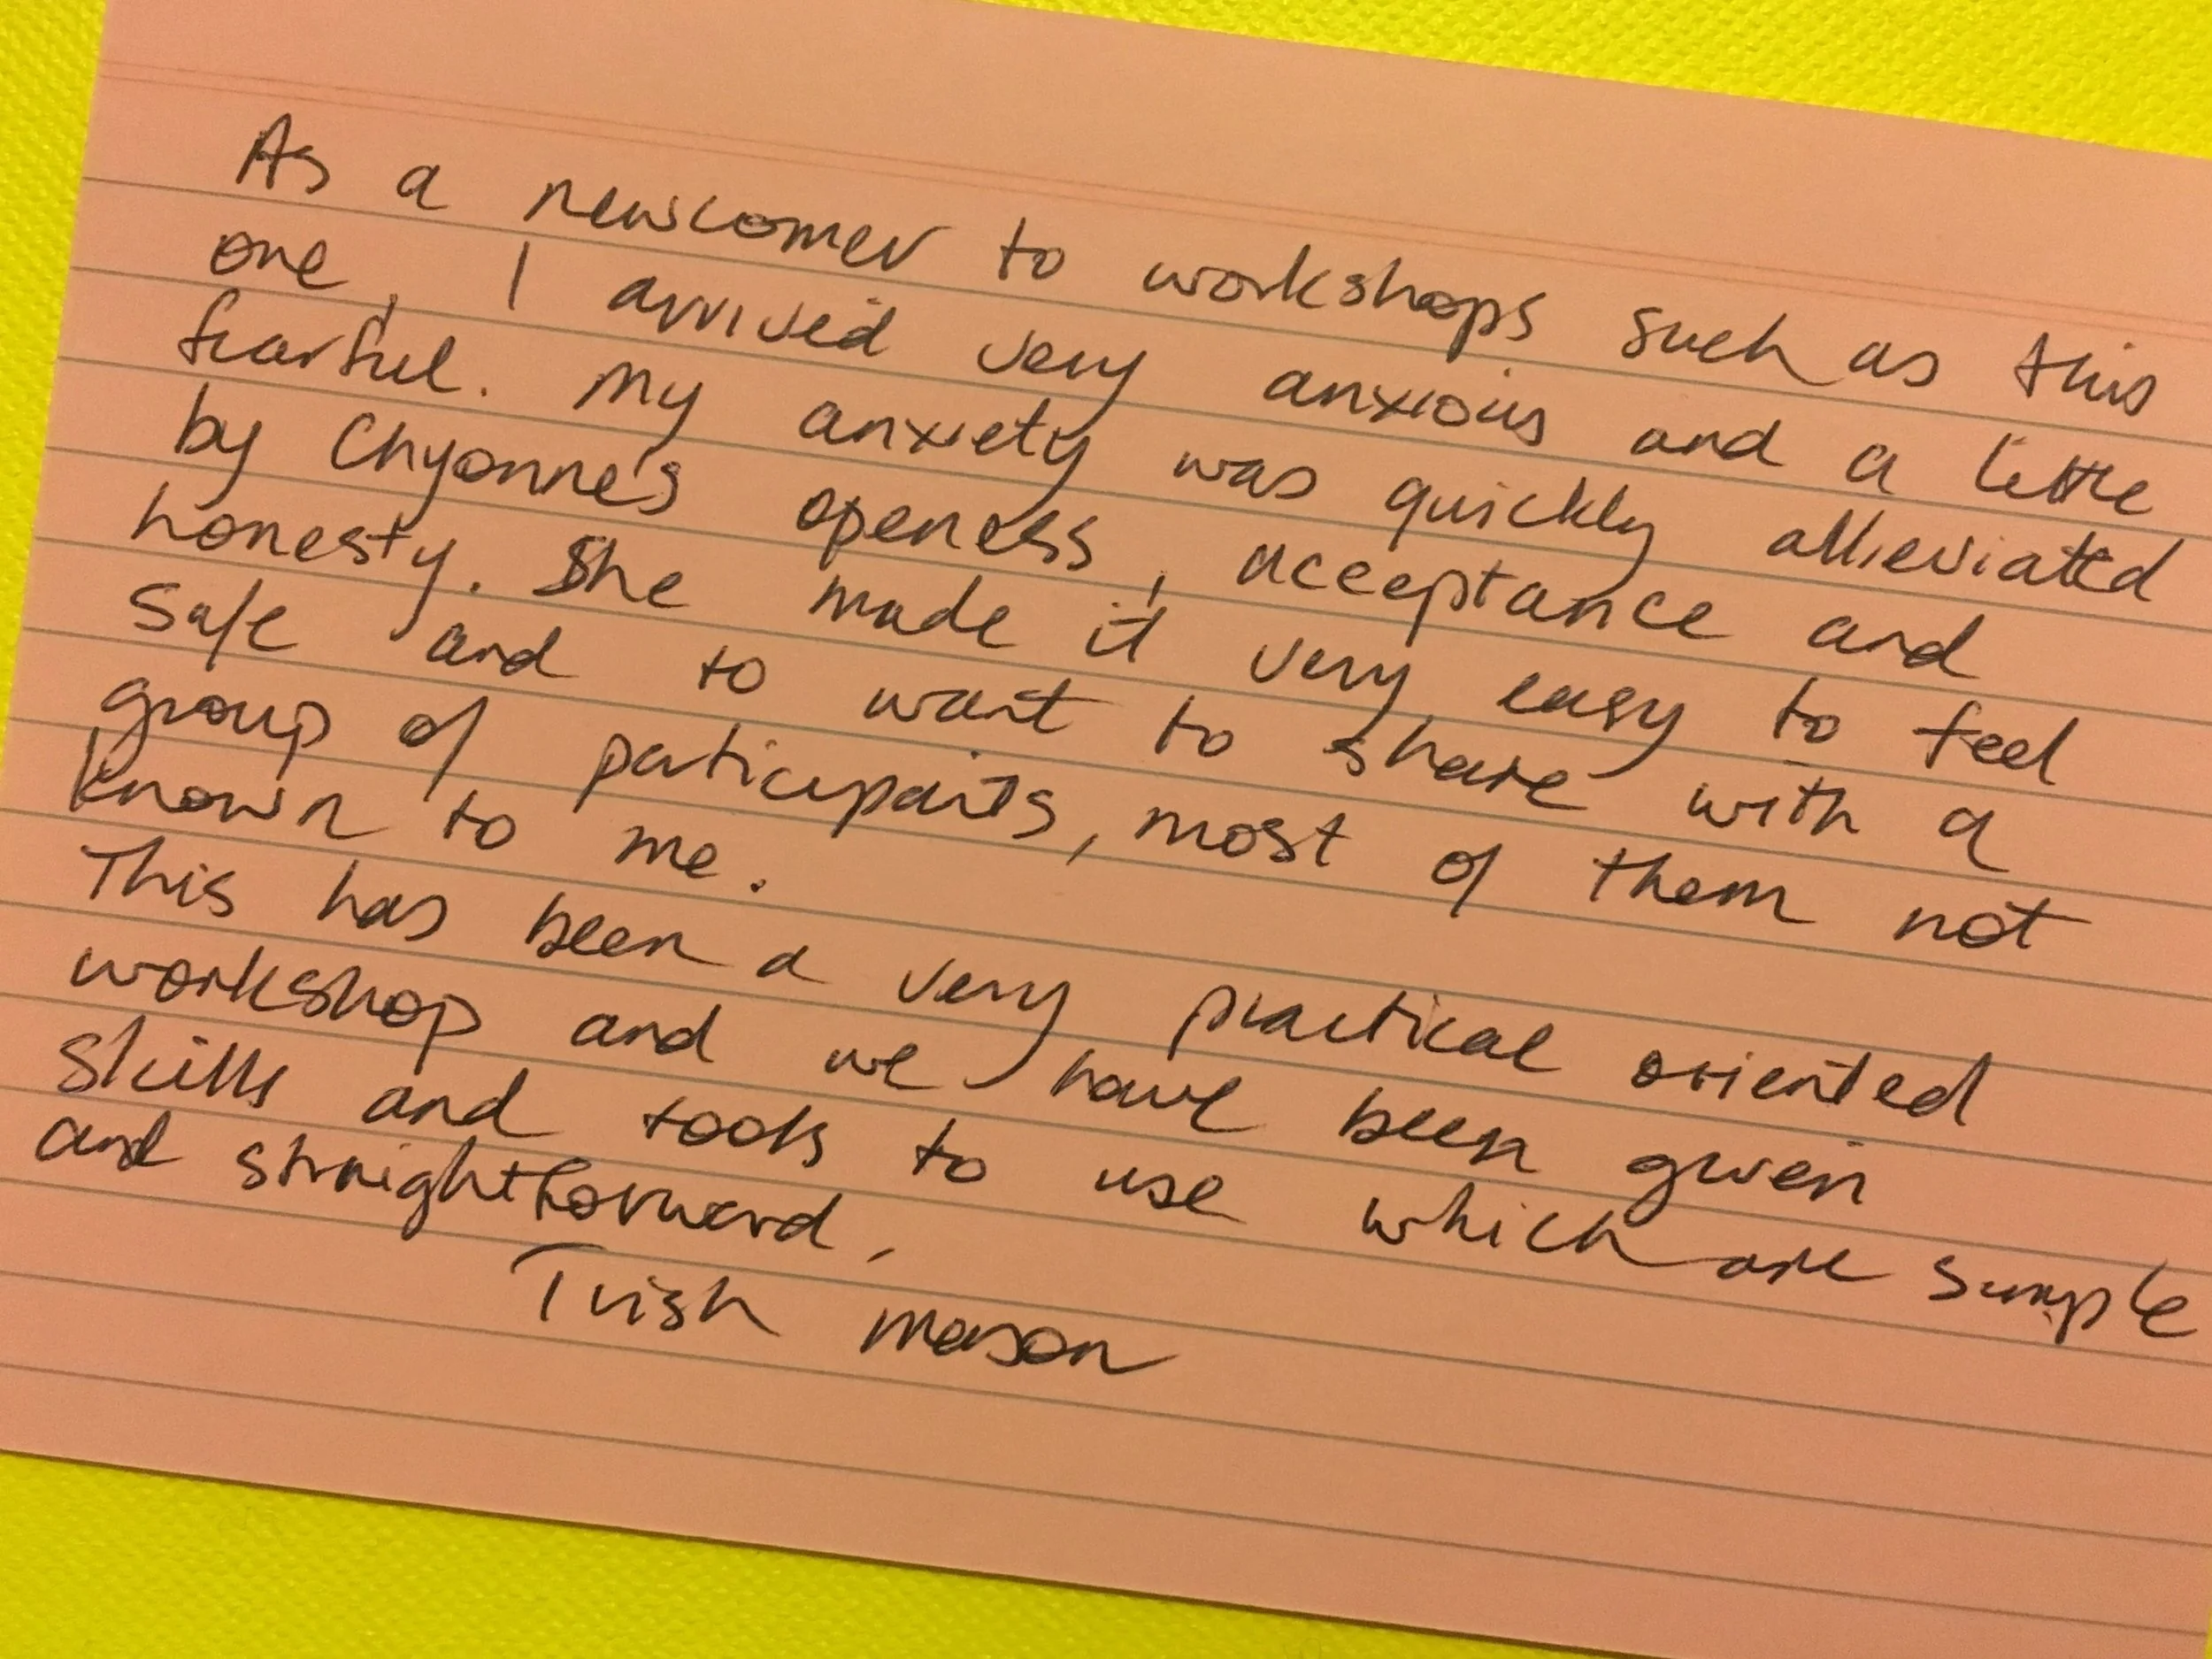 As a newcomer to workshops such as this
one, I arrived very anxious and a little
fearful. My anxiety was quickly allieviated
by Chyonne's openess, acceptance and
honesty. She made it very easy to feel
safe and to want to share with a
group of participants, most of them not
known to me.
This has been a very practical oriented
workshop and we have been given
skills and tools to use which are simple
and straightforward.
Trish Mason